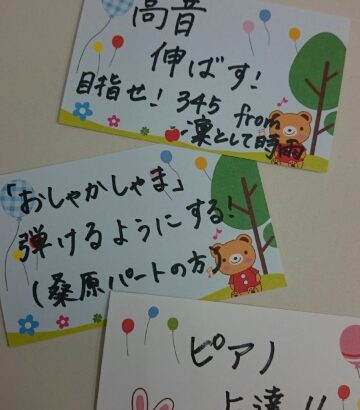 高音
伸ばす!
目指せ! 345 from
凛として時雨
「おしゃかしゃま」
弾けるようにする!
(桑原パートの方)
ピアノ
上達!!